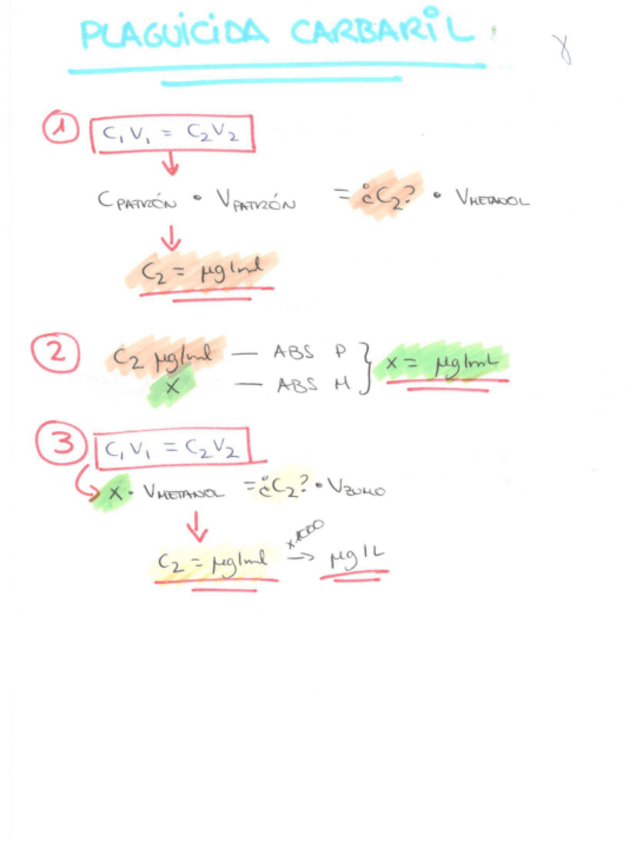 PLAGUICIDA CARBARIL.
8
1 C₁V₁ = C₂V₂
CPATRÓN • VPATRÓN = ¿C₂? • VMETANOL
C₂ = µg/ml
2 C₂ µg/ml — ABS P
X — ABS M } X = µg/mL
3 C₁V₁ = C₂V₂
X • VMETANOL = ¿C₂? • VZUMO
C₂ = µg/ml x1000 → µg/L